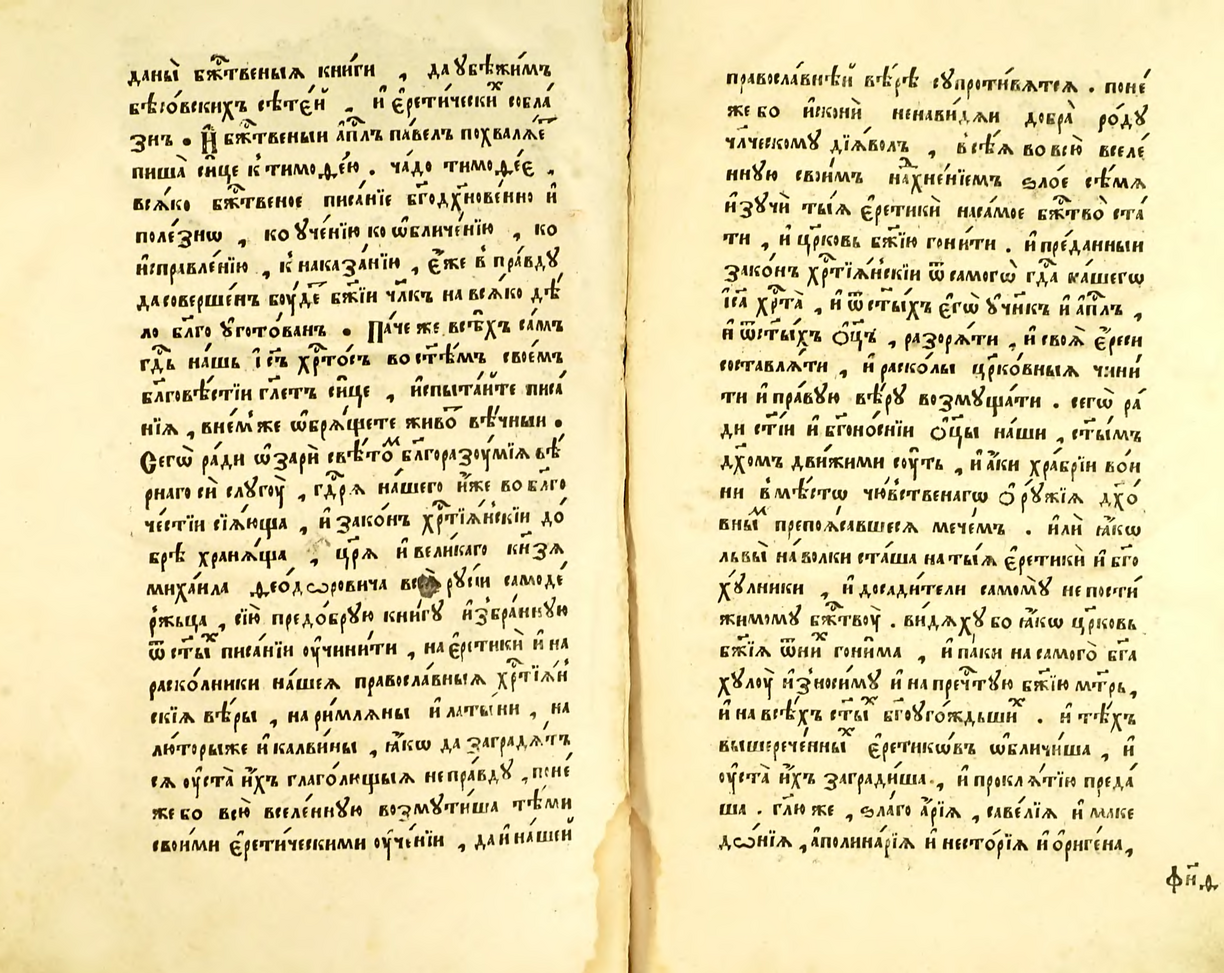 даны̀ бж҃твеныѧ кни́ги , да ꙋбѣжи́мъ
бѣсо́вскихъ сѣте́й , и҆ є҆рети́чески́х собла́
знъ . И҆ бж҃твеныи а҆пл҃ъ па́велъ похвалѧ́е
пиша̀ си́це к̾ тимоѳе́ю . ча́до тимоѳе́є ,
всѧ́ко бж҃твеное писа́нїе бг҃одх҃нове́нно и҆
поле́знѡ , ко ᲂу҆че́нїю ко ѡ҆бличе́нїю , ко
и҆справле́нїю , к̾ наказа́нїю , є҆́же в̾ пра́вдꙋ
да соверше́нъ бꙋ́де бж҃їи чл҃къ на всѧ́ко дѣ́
ло бл҃го ᲂу҆гото́ванъ . Па́че же всѣ́хъ са́мъ
гд҃ь на́шъ і҆с҃ъ хр҃то́съ во ст҃ѣ́мъ свое́мъ
бл҃говѣ́стїи гл҃етъ си́це , и҆спыта́йте писа́
нїѧ , в не́м же ѡ҆брѧ́щете живо́т вѣ́чныи .
Сегѡ̀ ра́ди ѡ҆зарѝ свѣ́томъ бл҃горазꙋ́мїѧ вѣ́
рнаго сѝ слꙋгꙋ̀ , гдⷭ҇рѧ на́шего и҆́же во бл҃го
че́стїи сїѧ́юща , и҆ зако́нъ хр҃тїѧ́нскїи до́
брѣ хранѧ́ща , цр҃ѧ и҆ вели́каго кнѧ҃зѧ
михаи́ла ѳео́дѡровича всеѧ̀ рꙋсі́и самоде́
ржьца , сїю̀ предо́брꙋю кни́гꙋ и҆збра́ннꙋю
ѿ ст҃ы́х писа́нїи ᲂу҆чини́ти , на є҆ретикѝ и҆ на
раско́лники на́шеѧ правосла́вныѧ хр҃тїѧ́н
скїѧ вѣ́ры , на ри́млѧны и҆ латы́ни , на
лю́торы же и҆ калви́ны , ꙗ҆́кѡ да заградѧ́тъ
сѧ ᲂу҆ста̀ и҆́хъ глаго́лющыѧ непра́вдꙋ , поне́
же бо всю̀ вселе́ннꙋю возмꙋти́ша тѣ́ми
свои́ми є҆рети́ческими ᲂу҆че́нїи , да и҆ на́шей
правосла́внѣй вѣ́рѣ сꙋпроти́вѧтсѧ . поне́
же бо и҆сконѝ ненави́дѧи добра̀ ро́дꙋ
чл҃ческомꙋ дїѧ́волъ , всѣ́ѧ во всю̀ вселе́
ннꙋю свои́мъ нахне́нїемъ ѕло́е сѣ́мѧ
и҆ зꙋчѝ ты́ѧ є҆ретикѝ на са́мое бж҃тво̀ ста́
ти , и҆ цр҃ковь бж҃їю гони́ти . и҆ пре́данныи
зако́нъ хр҃тїѧ́нскїи ѿ самогѡ̀ гд҃а на́шегѡ
і҆с҃а хр҃та̀ , и҆ ѿ ст҃ы́хъ є҆гѡ̀ ᲂу҆чн҃къ и҆ а҆пл҃ъ ,
и҆ ѿ ст҃ы́хъ ѻ҆ц҃ъ , разорѧ́ти , и҆ своѧ̀ є҆́реси
составлѧ́ти , и҆ раско́лы цр҃ко́вныѧ чини́
ти и҆ пра́вꙋю вѣ́рꙋ возмꙋща́ти . сегѡ̀ ра́
ди ст҃і́и и҆ бг҃оно́снїи ѻ҆ц҃ы на́ши , ст҃ы́мъ
дх҃омъ дви́жими сꙋ́ть , и҆ а҆́ки хра́брїи во́и
ни в̾мѣ́стѡ чю́вственагѡ ѻ҆рꙋ́жїѧ дх҃о́
вны́м препоѧ́савшесѧ мече́мъ . и҆лѝ ꙗ҆́кѡ
льво́вы на во́лки ста́ша на ты́ѧ є҆ретикѝ и҆ бг҃о
хꙋ́лники , и҆ досади́тели самомꙋ̀ непости
жи́момꙋ бж҃твꙋ̀ . ви́дѧхꙋ бо ꙗ҆́кѡ цр҃ковь
бж҃їѧ ѿ ни́х гони́ма , и҆ па́ки на самого̀ бг҃а
хꙋлꙋ̀ и҆зно́симꙋ и҆ на преч҃тꙋю бж҃їю мт҃рь ,
и҆ на всѣ́хъ ст҃ы́х бг҃оꙋго́ждьши́х . и҆ тѣ́хъ
вышерече́нны́х є҆ретикѡ́въ ѡ҆бличи́ша , и҆
ᲂу҆ста̀ и҆́хъ загради́ша , и҆ проклѧ́тїю преда́
ша . гл҃ю же , ѕла́го а҆́рїѧ , саве́лїѧ и҆ маке
дѡ́нїѧ , а҆полина́рїѧ и҆ несто́рїѧ и҆ ѻ҆риге́на ,